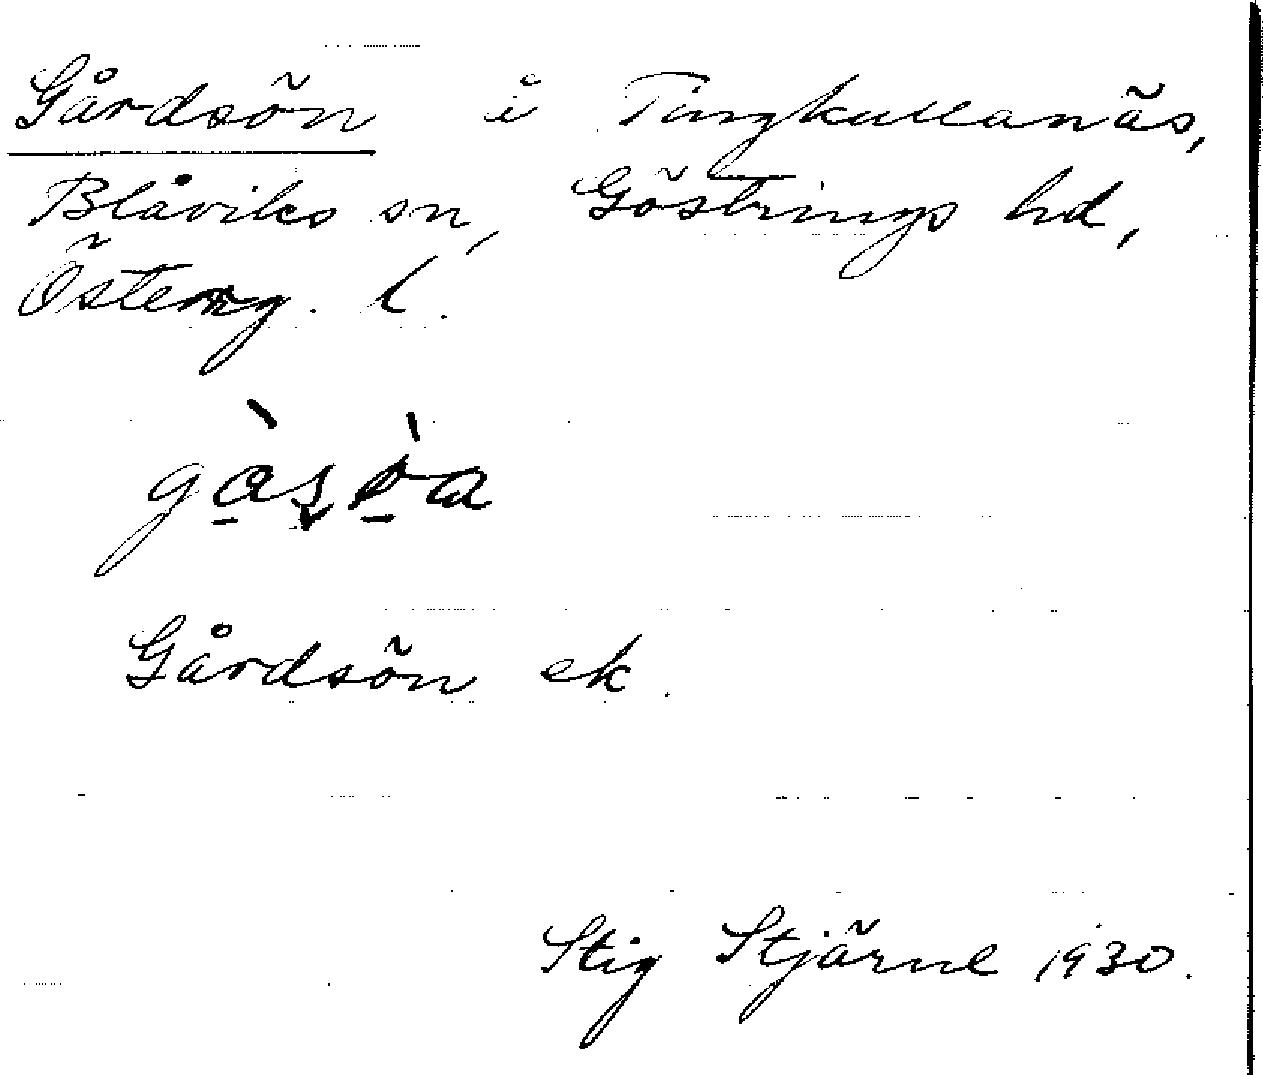 Gårdsön i Tingkullanäs,
Blåviks sn, Göstrings hd,
Österg. l.
Gårdsön ek.
Stig Stjärne 1930.